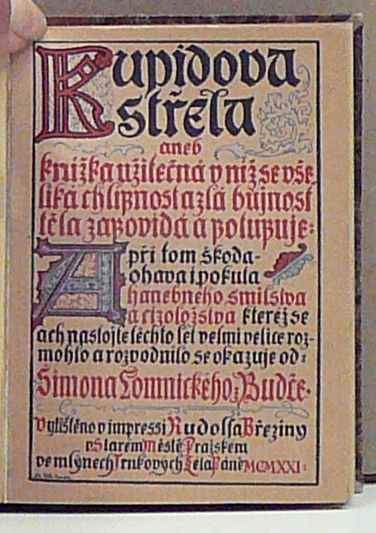 Kupidova
střela
aneb
knížka užitečná v níž se vše
liká chlipnost a zlá bujnost
těla zapovídá a potupuje:
A při tom škoda-
ohava i pokuta
hanebného smilstva
a cizoložstva kteréj se
ach nastojte těchto let velmi velice roz-
mohlo a rozvodnilo se okazuje od:
Simona Lomnického z Budče.
Vytištěno v impressí Rudolfa Březiny
v Starém Městě Prajském
ve mlýnech Trnkových Léta Páně MCMXXI: